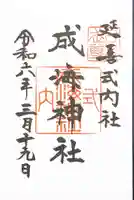 延喜式内社
成海神社
令和六年 三月十九日